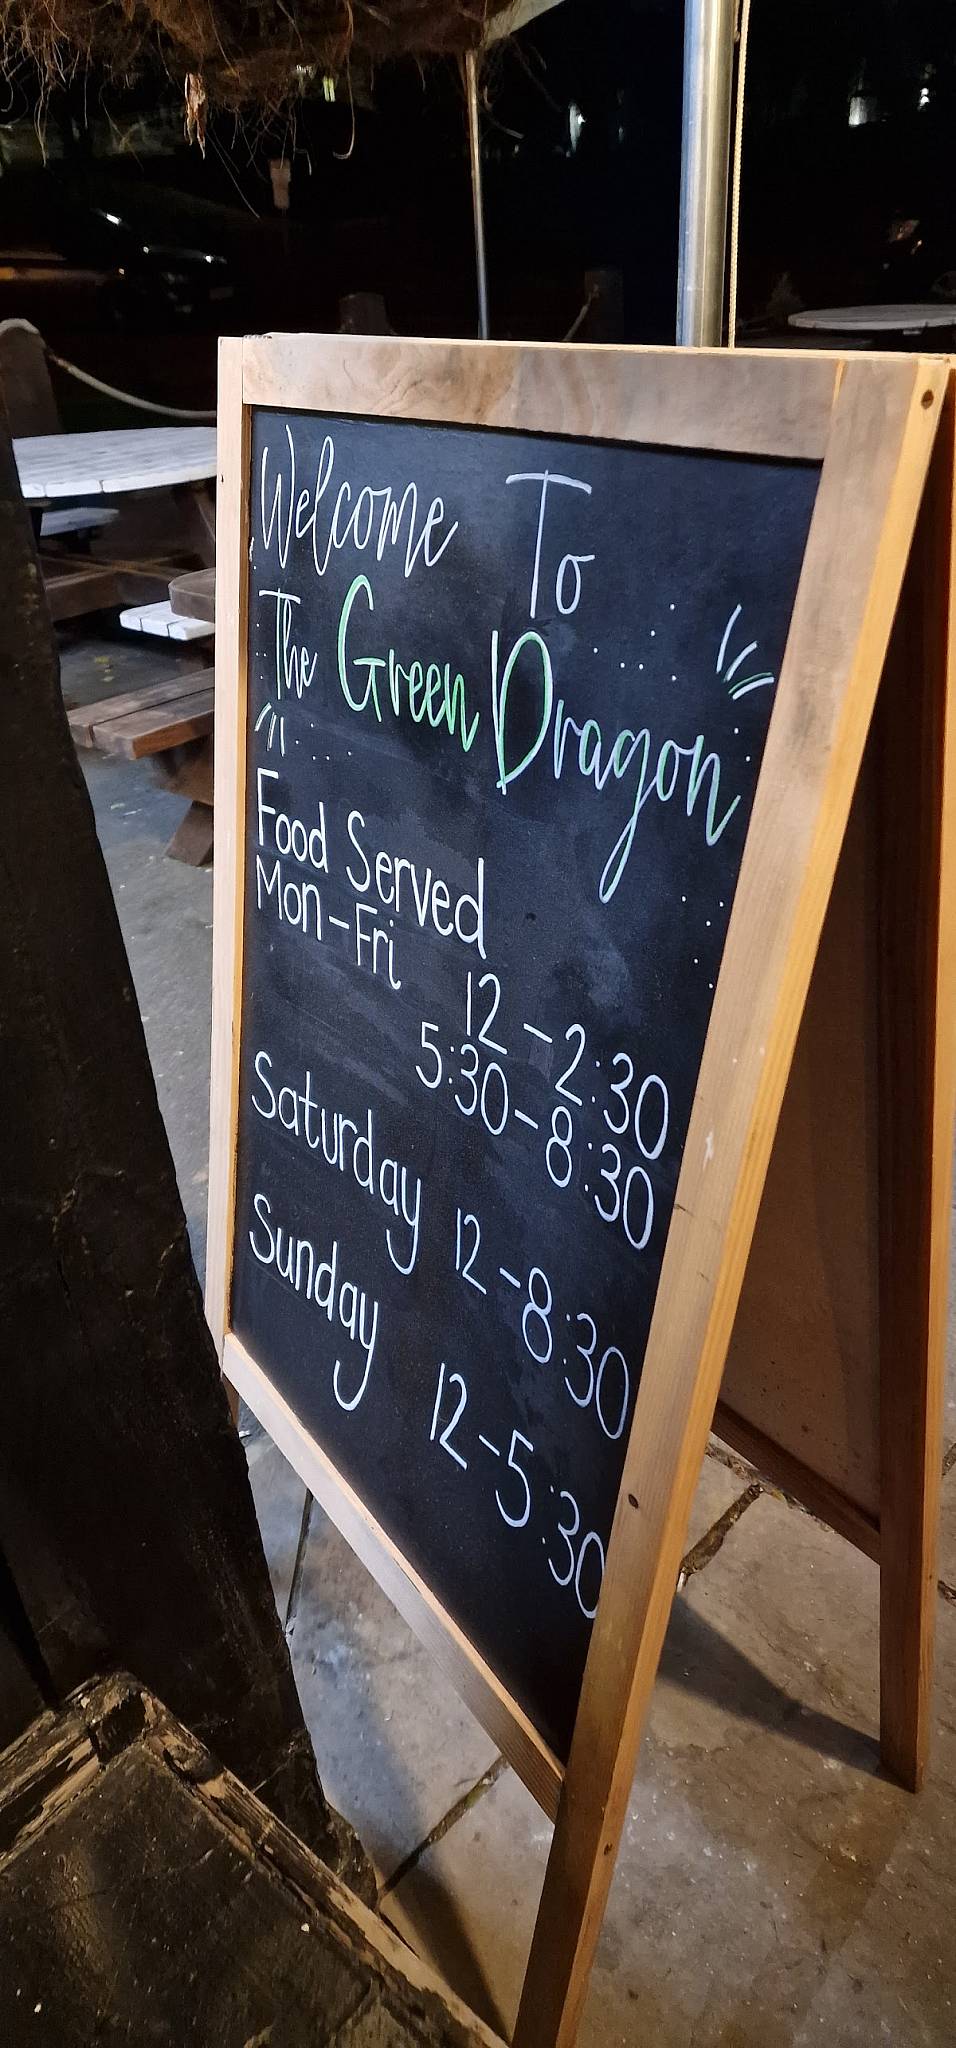 Welcome To
The Green Dragon
Food Served
Mon-Fri 12-2:30
5:30-8:30
Saturday 12-8:30
Sunday 12-5:30